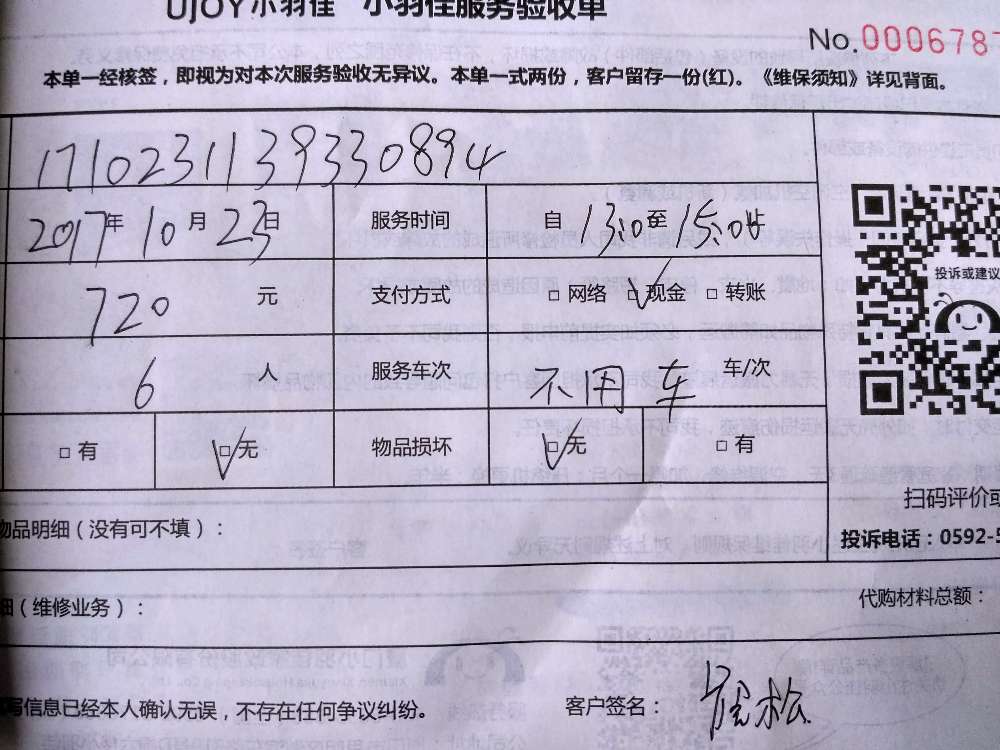 UJOY小羽佳 小羽佳服务验收单
No.000678
本单一经核签，即视为对本次服务验收无异议。本单一式两份，客户留存一份(红)。《维保须知》详见背面。
1710231139330894
2017年10月23日 服务时间 自13:0至15:0止
720元 支付方式 □网络 □现金 □转账
投诉或建议
6人 服务车次 不用车 车/次
□有 □无 物品损坏 □无 □有
扫码评价或
物品明细（没有可不填）：
投诉电话：0592-5
细（维修业务）： 代购材料总额：
写信息已经本人确认无误，不存在任何争议纠纷。 客户签名：